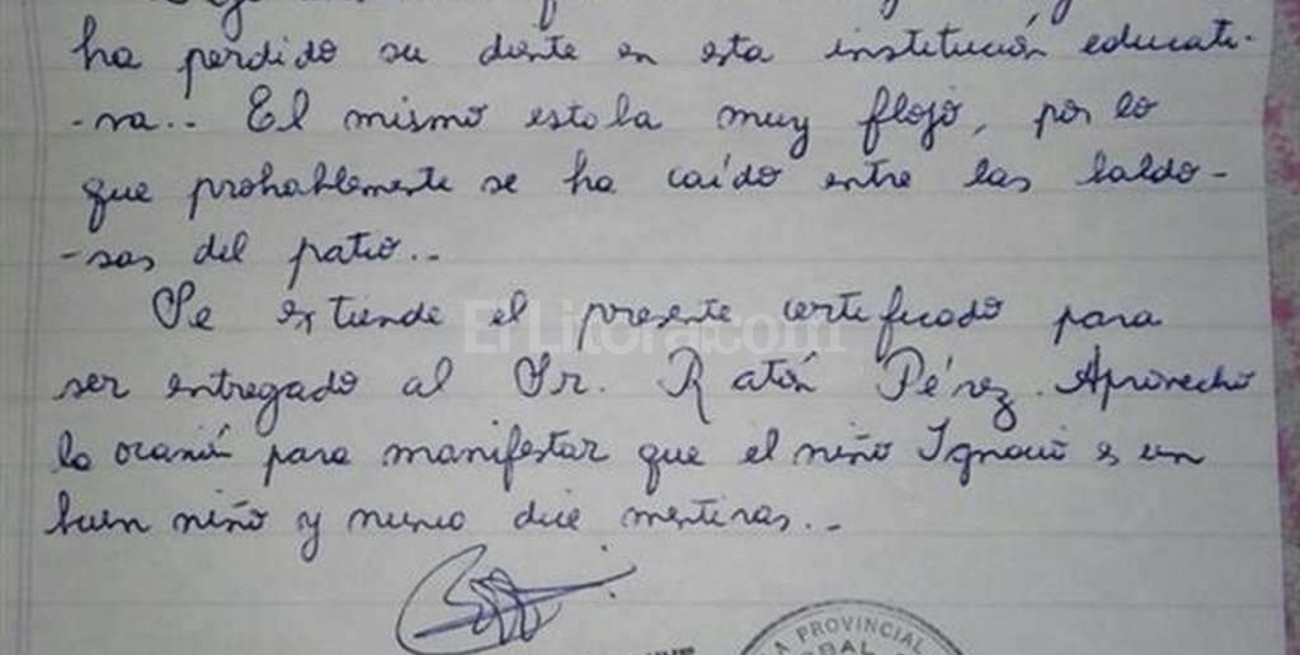 ha perdido su diente en esta institución educati-
-va.. El mismo estaba muy flojo, por lo
que probablemente se ha caído entre las baldo-
-sas del patio..
Se extiende el presente certificado para
ser entregado al Sr. Ratón Pérez. Aprovecho
la ocasión para manifestar que el niño Ignacio es un
buen niño y nunca dice mentiras..-
El Litoral.com
A PROVINCIAL